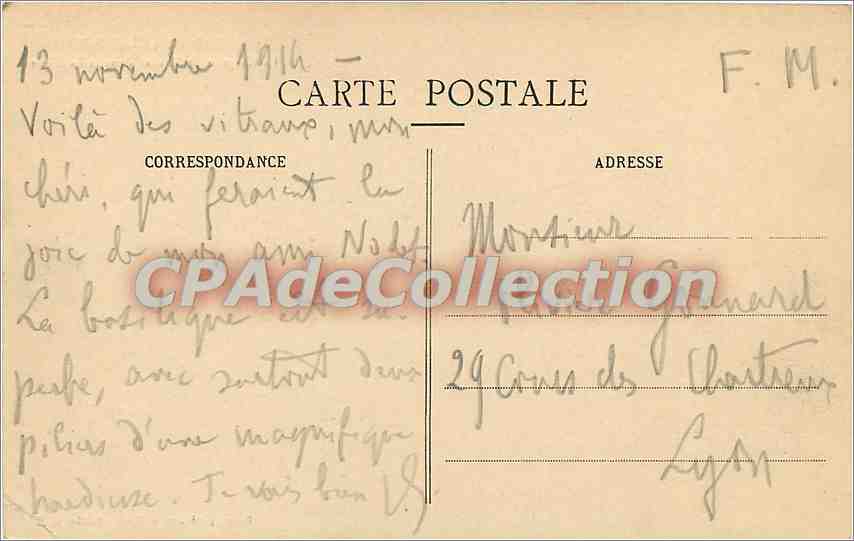 13 novembre 1914 –
F. M.
CARTE POSTALE
Voilà des vitraux, mon
CORRESPONDANCE
ADRESSE
chéri, qui feraient la
joie de mon ami Nodet.
La basilique est su-
perbe, avec surtout deux
piliers d'une magnifique
hardiesse. Je vais bien
Monsieur
Gounard
29 Cours des Chartreux
Lyon
CPAdeCollection.com